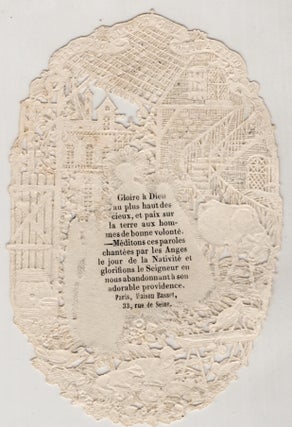 Gloire à Dieu
au plus haut des
cieux, et paix sur
la terre aux hom-
mes de bonne volonté.
—Méditons ces paroles
chantées par les Anges
le jour de la Nativité et
glorifions le Seigneur en
nous abandonnant à son
adorable providence.
Paris, Maison Basset,
33, rue de Seine.